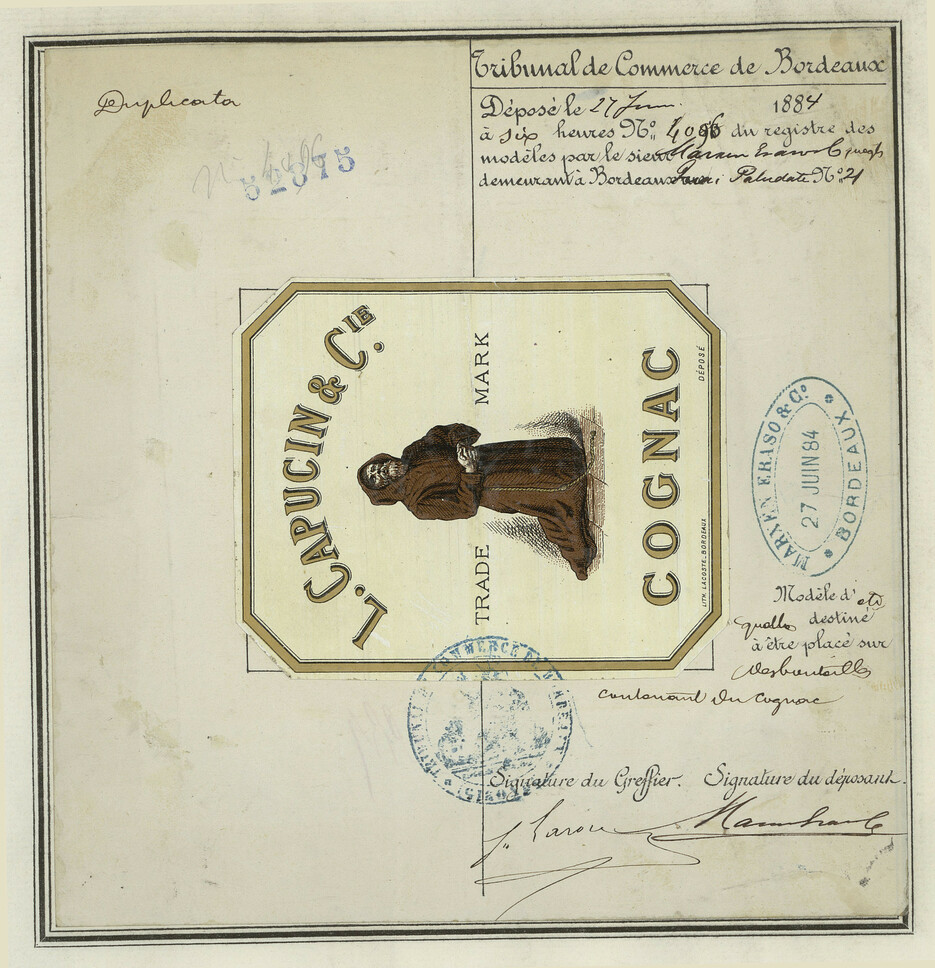 Duplicata
52375
Tribunal de Commerce de Bordeaux
Déposé le 27 Juin 1884
à six heures No. du registre des
modèles par le sieur Marxen Eraso &
demeurant à Bordeaux Paludate No. 21
L. CAPUCIN & CIE
TRADE MARK
COGNAC
DÉPOSÉ
LITH. LACOSTE. BORDEAUX
MARXEN ERASO & Co.
27 JUIN 84
BORDEAUX
Modèle d'éti
quette destiné
à être placé sur
des bouteilles
contenant du Cognac
Signature du Greffier. Signature du déposant.